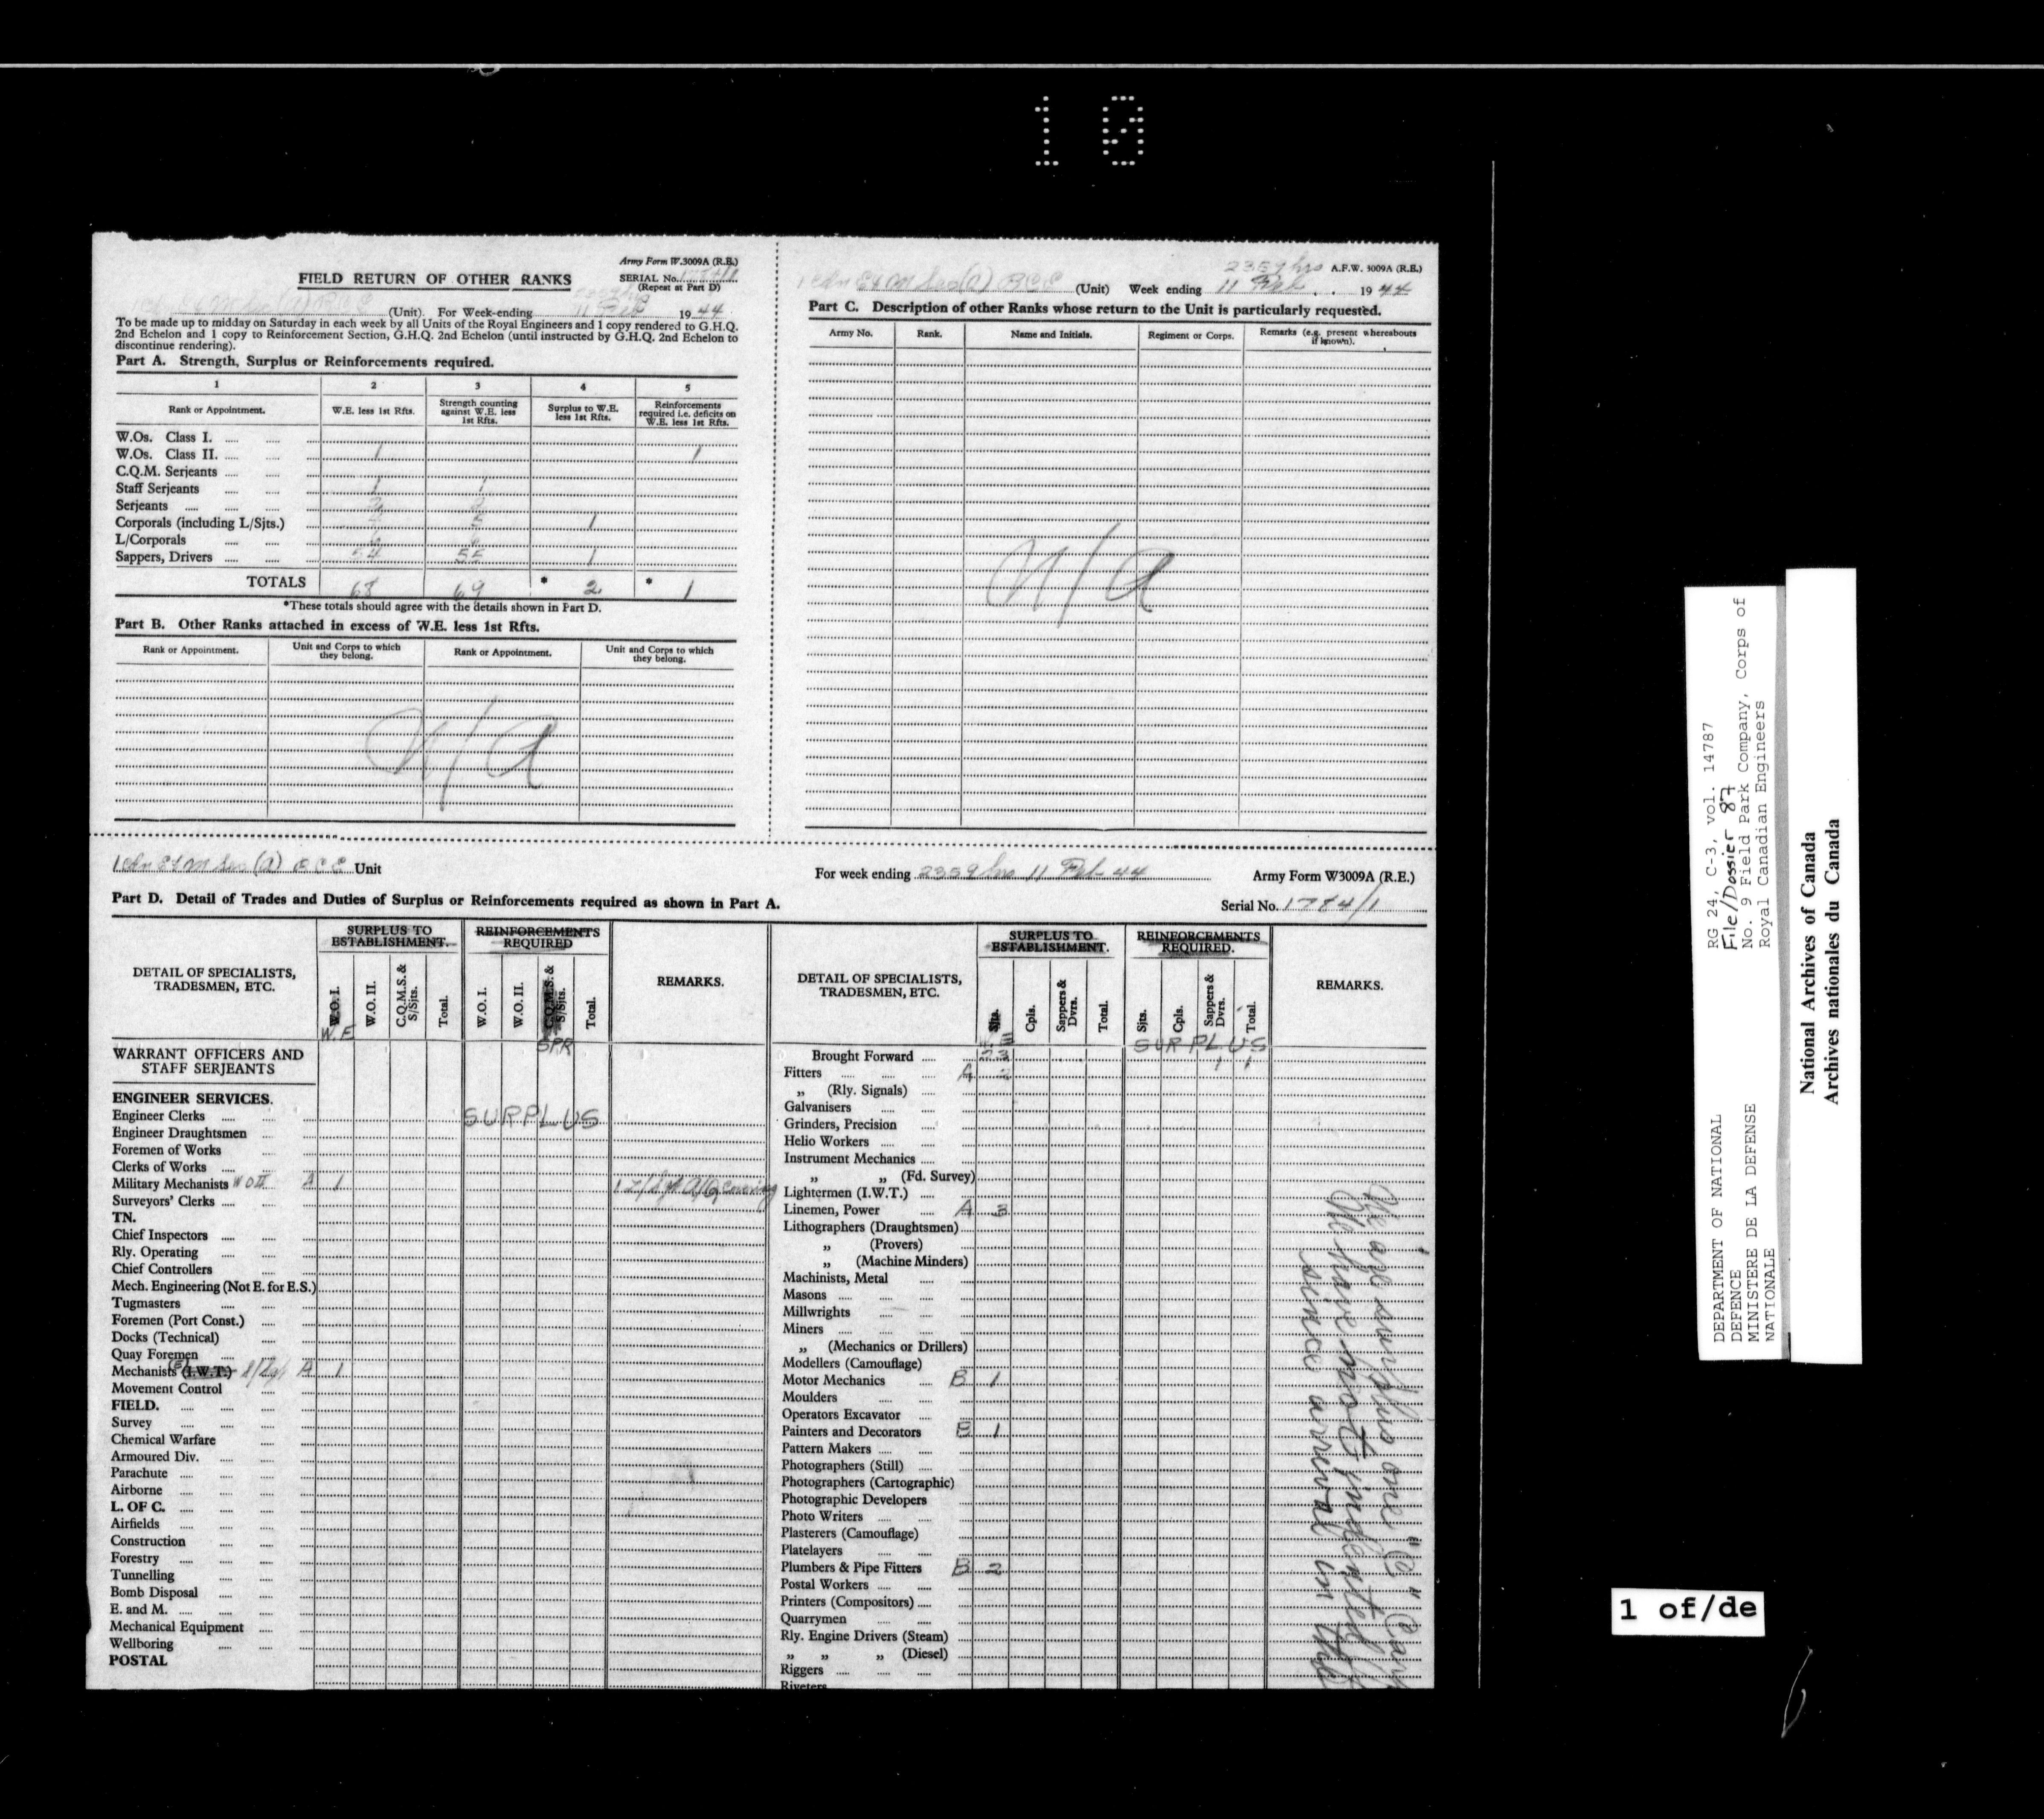 10
Army Form W.3009A (R.E.)
FIELD RETURN OF OTHER RANKS
SERIAL No.
(Repeat at Part D)
(Unit). For Week-ending 11 Feb 1944
To be made up to midday on Saturday in each week by all Units of the Royal Engineers and 1 copy rendered to G.H.Q.
2nd Echelon and 1 copy to Reinforcement Section, G.H.Q. 2nd Echelon (until instructed by G.H.Q. 2nd Echelon to
discontinue rendering).
Part A. Strength, Surplus or Reinforcements required.
1 2 3 4 5
Rank or Appointment. W.E. less 1st Rfts. Strength counting against W.E. less 1st Rfts. Surplus to W.E. less 1st Rfts. Reinforcements required i.e. deficits on W.E. less 1st Rfts.
W.Os. Class I.
W.Os. Class II. 1 1
C.Q.M. Serjeants
Staff Serjeants 1 1
Serjeants
Corporals (including L/Sjts.) 5 1
L/Corporals
Sappers, Drivers 54 55 1
TOTALS 68 69 * 2 * 1
*These totals should agree with the details shown in Part D.
Part B. Other Ranks attached in excess of W.E. less 1st Rfts.
Rank or Appointment. Unit and Corps to which they belong. Rank or Appointment. Unit and Corps to which they belong.
N/A
2359 hrs A.F.W. 3009A (R.E.)
1 Cdn E & M Sec (A) RCE (Unit) Week ending 11 Feb 1944
Part C. Description of other Ranks whose return to the Unit is particularly requested.
Army No. Rank. Name and Initials. Regiment or Corps. Remarks (e.g. present whereabouts if known).
N/A
1 Cdn E & M Sec (A) RCE Unit
For week ending 2359 hrs 11 Feb 44 Army Form W3009A (R.E.)
Part D. Detail of Trades and Duties of Surplus or Reinforcements required as shown in Part A.
Serial No. 1784/1
DETAIL OF SPECIALISTS, TRADESMEN, ETC.
SURPLUS TO ESTABLISHMENT.
REINFORCEMENTS REQUIRED
REMARKS.
W.O. I. W.O. II. C.Q.M.S. & S/Sjts. Total. W.O. I. W.O. II. C.Q.M.S. & S/Sjts. Total.
W.E SPR
WARRANT OFFICERS AND
STAFF SERJEANTS
ENGINEER SERVICES.
Engineer Clerks SURPLUS
Engineer Draughtsmen
Foremen of Works
Clerks of Works
Military Mechanists WOII A 1
Surveyors' Clerks
TN.
Chief Inspectors
Rly. Operating
Chief Controllers
Mech. Engineering (Not E. for E.S.)
Tugmasters
Foremen (Port Const.)
Docks (Technical)
Quay Foremen
Mechanists (E) (I.W.T.) A 1
Movement Control
FIELD.
Survey
Chemical Warfare
Armoured Div.
Parachute
Airborne
L. OF C.
Airfields
Construction
Forestry
Tunnelling
Bomb Disposal
E. and M.
Mechanical Equipment
Wellboring
POSTAL
DETAIL OF SPECIALISTS, TRADESMEN, ETC.
SURPLUS TO ESTABLISHMENT.
REINFORCEMENTS REQUIRED.
REMARKS.
Sjts. Cpls. Sappers & Dvrs. Total. Sjts. Cpls. Sappers & Dvrs. Total.
SURPLUS
Brought Forward 23 1 1
Fitters A 2
„ (Rly. Signals)
Galvanisers
Grinders, Precision
Helio Workers
Instrument Mechanics
„ „ (Fd. Survey)
Lightermen (I.W.T.)
Linemen, Power A 3
Lithographers (Draughtsmen)
„ (Provers)
„ (Machine Minders)
Machinists, Metal
Masons
Millwrights
Miners
„ (Mechanics or Drillers)
Modellers (Camouflage)
Motor Mechanics B 1
Moulders
Operators Excavator
Painters and Decorators B 1
Pattern Makers
Photographers (Still)
Photographers (Cartographic)
Photographic Developers
Photo Writers
Plasterers (Camouflage)
Platelayers
Plumbers & Pipe Fitters B 2
Postal Workers
Printers (Compositors)
Quarrymen
Rly. Engine Drivers (Steam)
„ „ „ (Diesel)
Riggers
Riveters
We are surplus one "C"
We have not indented
since arrival in this
RG 24, C-3, vol. 14787
File/Dossier 87
No. 9 Field Park Company, Corps of
Royal Canadian Engineers
DEPARTMENT OF NATIONAL
DEFENCE
MINISTERE DE LA DEFENSE
NATIONALE
National Archives of Canada
Archives nationales du Canada
1 of/de